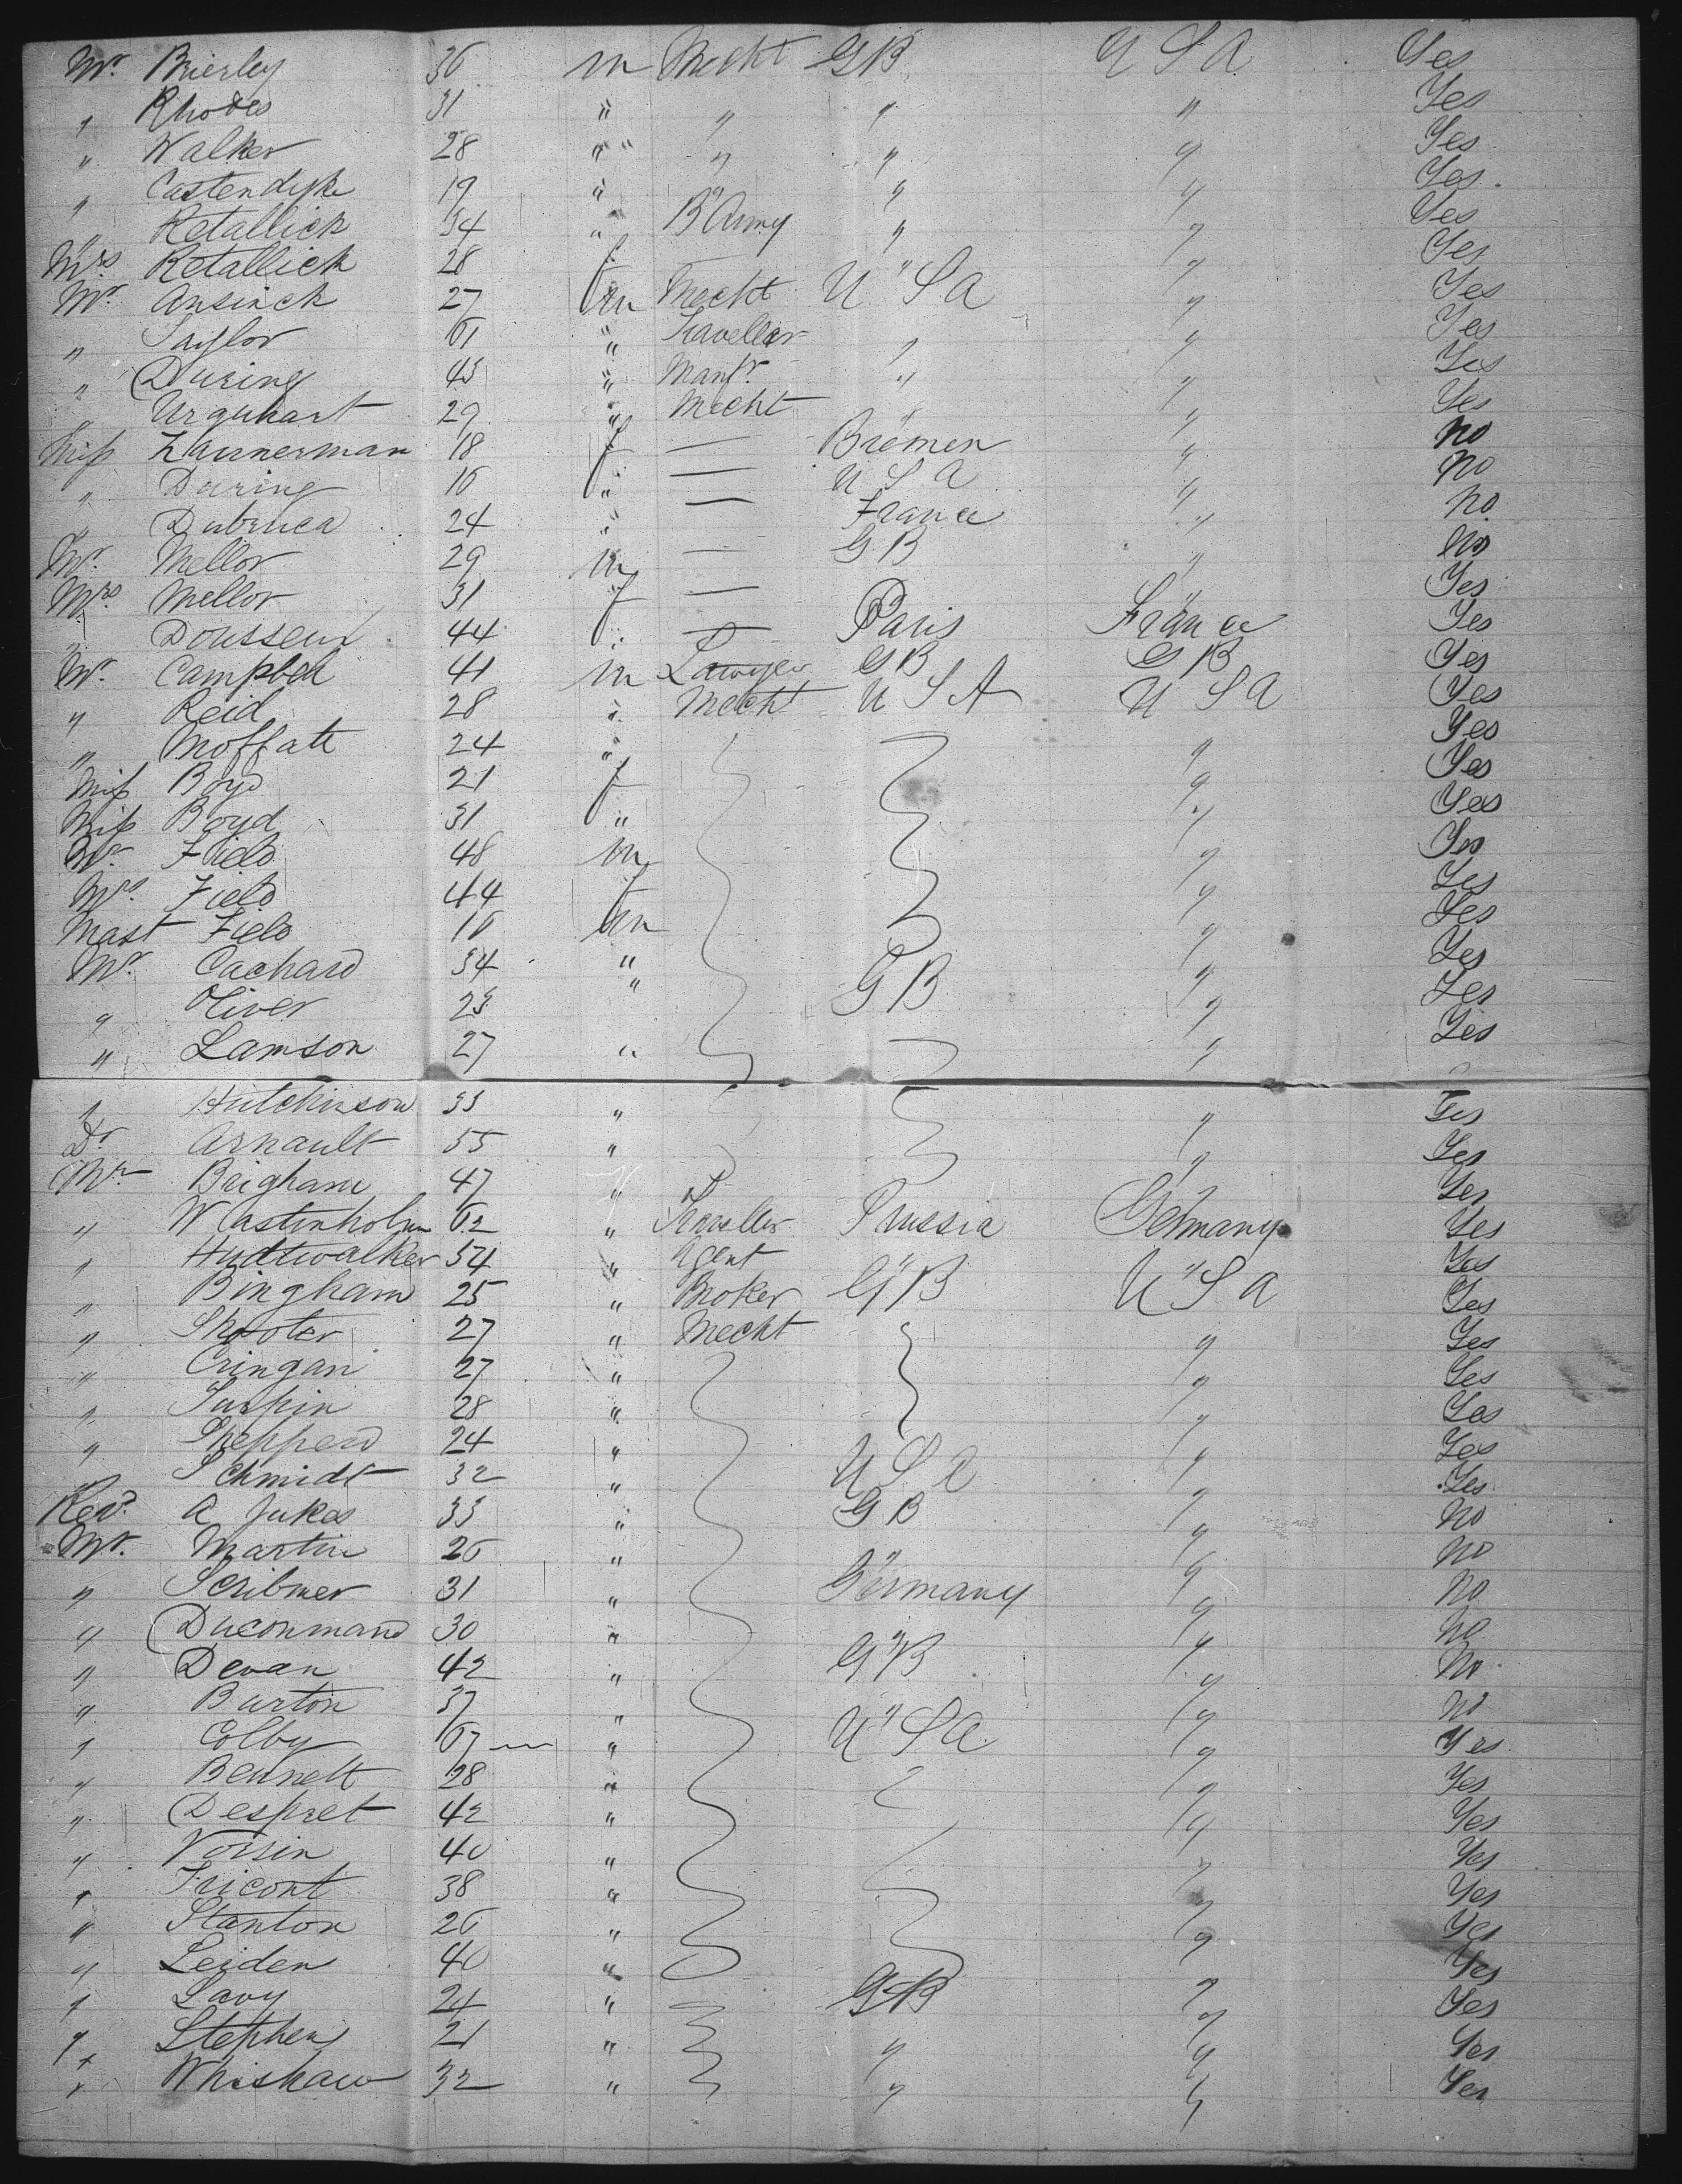 Mr. Brierley 36 m Mecht GB U S A Yes
" Rhodes 31 " " " " Yes
" Walker 28 " " " " " Yes
" Castendyk 19 " " " " Yes
" Retallick 34 " B Army " " Yes
Mrs. Retallick 28 f " " Yes
Mr. Ansinck 27 m Mecht U S A " Yes
" Taylor 61 " Traveller " " Yes
" During 43 " Manfr. " " Yes
" Urquhart 29 " Mecht " " Yes
Miss Zannerman 18 f — Bremen " No
" During 16 " — U S A " No
" Dubruca 24 " — France " No
Mr. Mellor 29 m — G B " No
Mrs. Mellor 31 f — " Yes
" Dousseur 44 " — Paris France Yes
Mr. Campbell 41 m Lawyer GB GB Yes
" Reid 28 " Mecht U S A U S A Yes
" Moffatt 24 " " Yes
Miss Boyd 21 f " Yes
Miss Boyd 31 " " Yes
Mr. Field 48 m " Yes
Mrs. Field 44 f " Yes
Mast Field 16 m " Yes
Mr. Cachard 34 " G B " Yes
" Oliver 23 " " Yes
" Lamson 27 " " Yes
" Hutchinson 33 " " Yes
Dr. Arnault 55 " " Yes
Mr. Brigham 47 " " Yes
" Wastenholm 62 " Traveller Prussia Germany Yes
" Hudtwalker 54 " Agent " " Yes
" Bingham 25 " Broker G B U S A Yes
" Shooter 27 " Mecht " Yes
" Cringan 27 " " Yes
" Turpin 28 " " Yes
" Shepperd 24 " U S A " Yes
" Schmidt 32 " " Yes
Revd. A Jukes 33 " G B " No
Mr. Martin 26 " " " No
" Scribmer 31 " Germany " No
" Duconmand 30 " " " No
" Devan 42 " G B " No
" Burton 37 " " " No
" Colby 67 " U S A " Yes
" Bennett 28 " " Yes
" Despret 42 " " Yes
" Voisin 40 " " Yes
" Fricont 38 " " Yes
" Stanton 26 " " Yes
" Leiden 40 " " Yes
" Lavy 24 " GB " Yes
" Stephens 21 " " " Yes
" Whishaw 32 " " " Yes